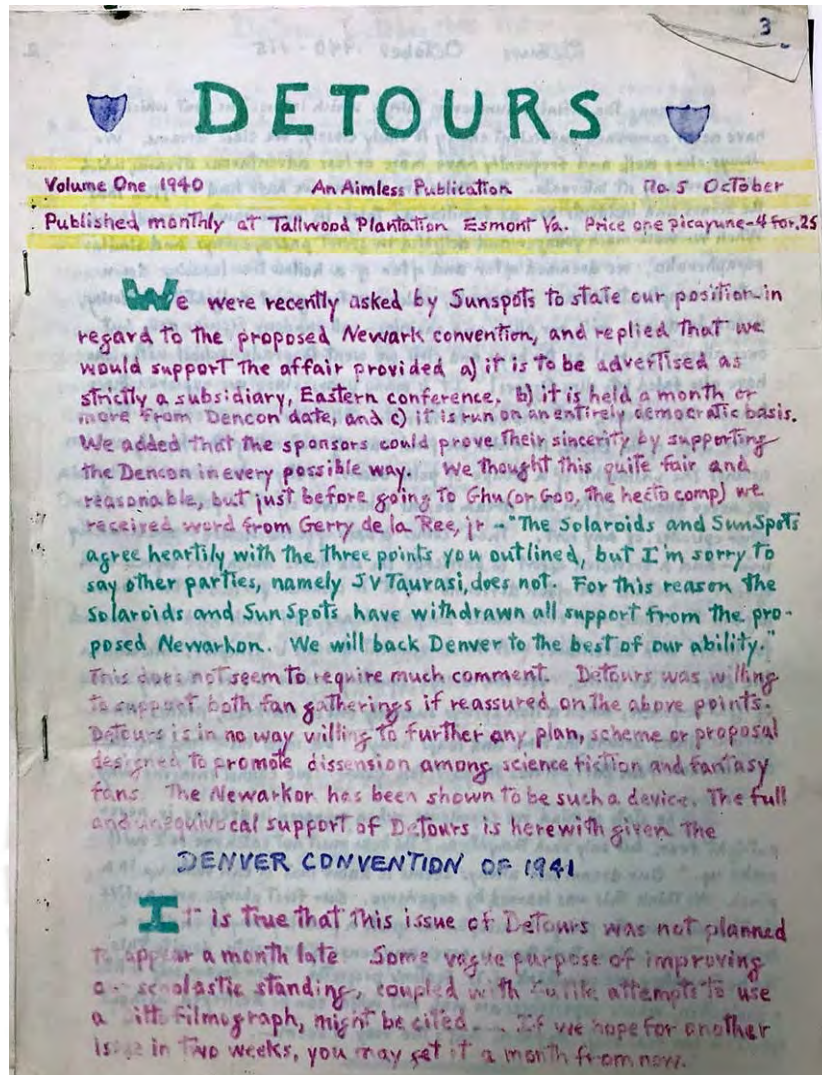 3
DETOURS
Volume One 1940 An Aimless Publication No. 5 October
Published monthly at Tallwood Plantation Esmont Va. Price one picayune-4 for .25
We were recently asked by Sunspots to state our position in
regard to the proposed Newark convention, and replied that we
would support the affair provided a) it is to be advertised as
strictly a subsidiary, Eastern conference. b) it is held a month or
more from Dencon date, and c) it is run on an entirely democratic basis.
We added that the sponsors could prove their sincerity by supporting
the Dencon in every possible way. We thought this quite fair and
reasonable, but just before going to Ghu (or Goo, the hecto comp) we
received word from Gerry de la Ree, jr - "The Solaroids and SunSpots
agree heartily with the three points you outlined, but I'm sorry to
say other parties, namely J V Taurasi, does not. For this reason the
Solaroids and SunSpots have withdrawn all support from the pro-
posed Newarkon. We will back Denver to the best of our ability."
This does not seem to require much comment. Detours was willing
to support both fan gatherings if reassured on the above points.
Detours is in no way willing to further any plan, scheme or proposal
designed to promote dissension among science fiction and fantasy
fans. The Newarkon has been shown to be such a device. The full
and unequivocal support of Detours is herewith given the
DENVER CONVENTION OF 1941
It is true that this issue of Detours was not planned
to appear a month late Some vague purpose of improving
scholastic standing, coupled with futile attempts to use
a Ditto filmograph, might be cited... If we hope for another
issue in two weeks, you may get it a month from now.